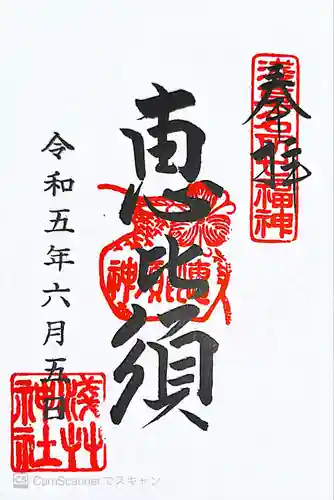 奉拝
浅草名所七福神
恵比須
令和五年六月五日
浅艸神社
CS CamScannerでスキャン